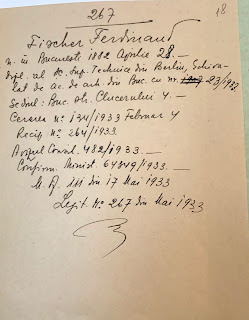 267
18
Fischer Ferdinand
n. în București 1882 Aprilie 28. —
dipl. al Sc. Sup. Technice din Berlin,
lat de ac. de arh din Buc. cu nr. 23/922
Sediul: Buc. str. Clucerului 4 —
Cererea Nº 194/1933 Februar 4
Recip. Nº 264/1933.
Avizul Consil. 482/1933. —
Confirm. Minist. 64849/1933. —
M. Of. 111 din 17 Mai 1933
Legit Nº 267 din Mai 1933